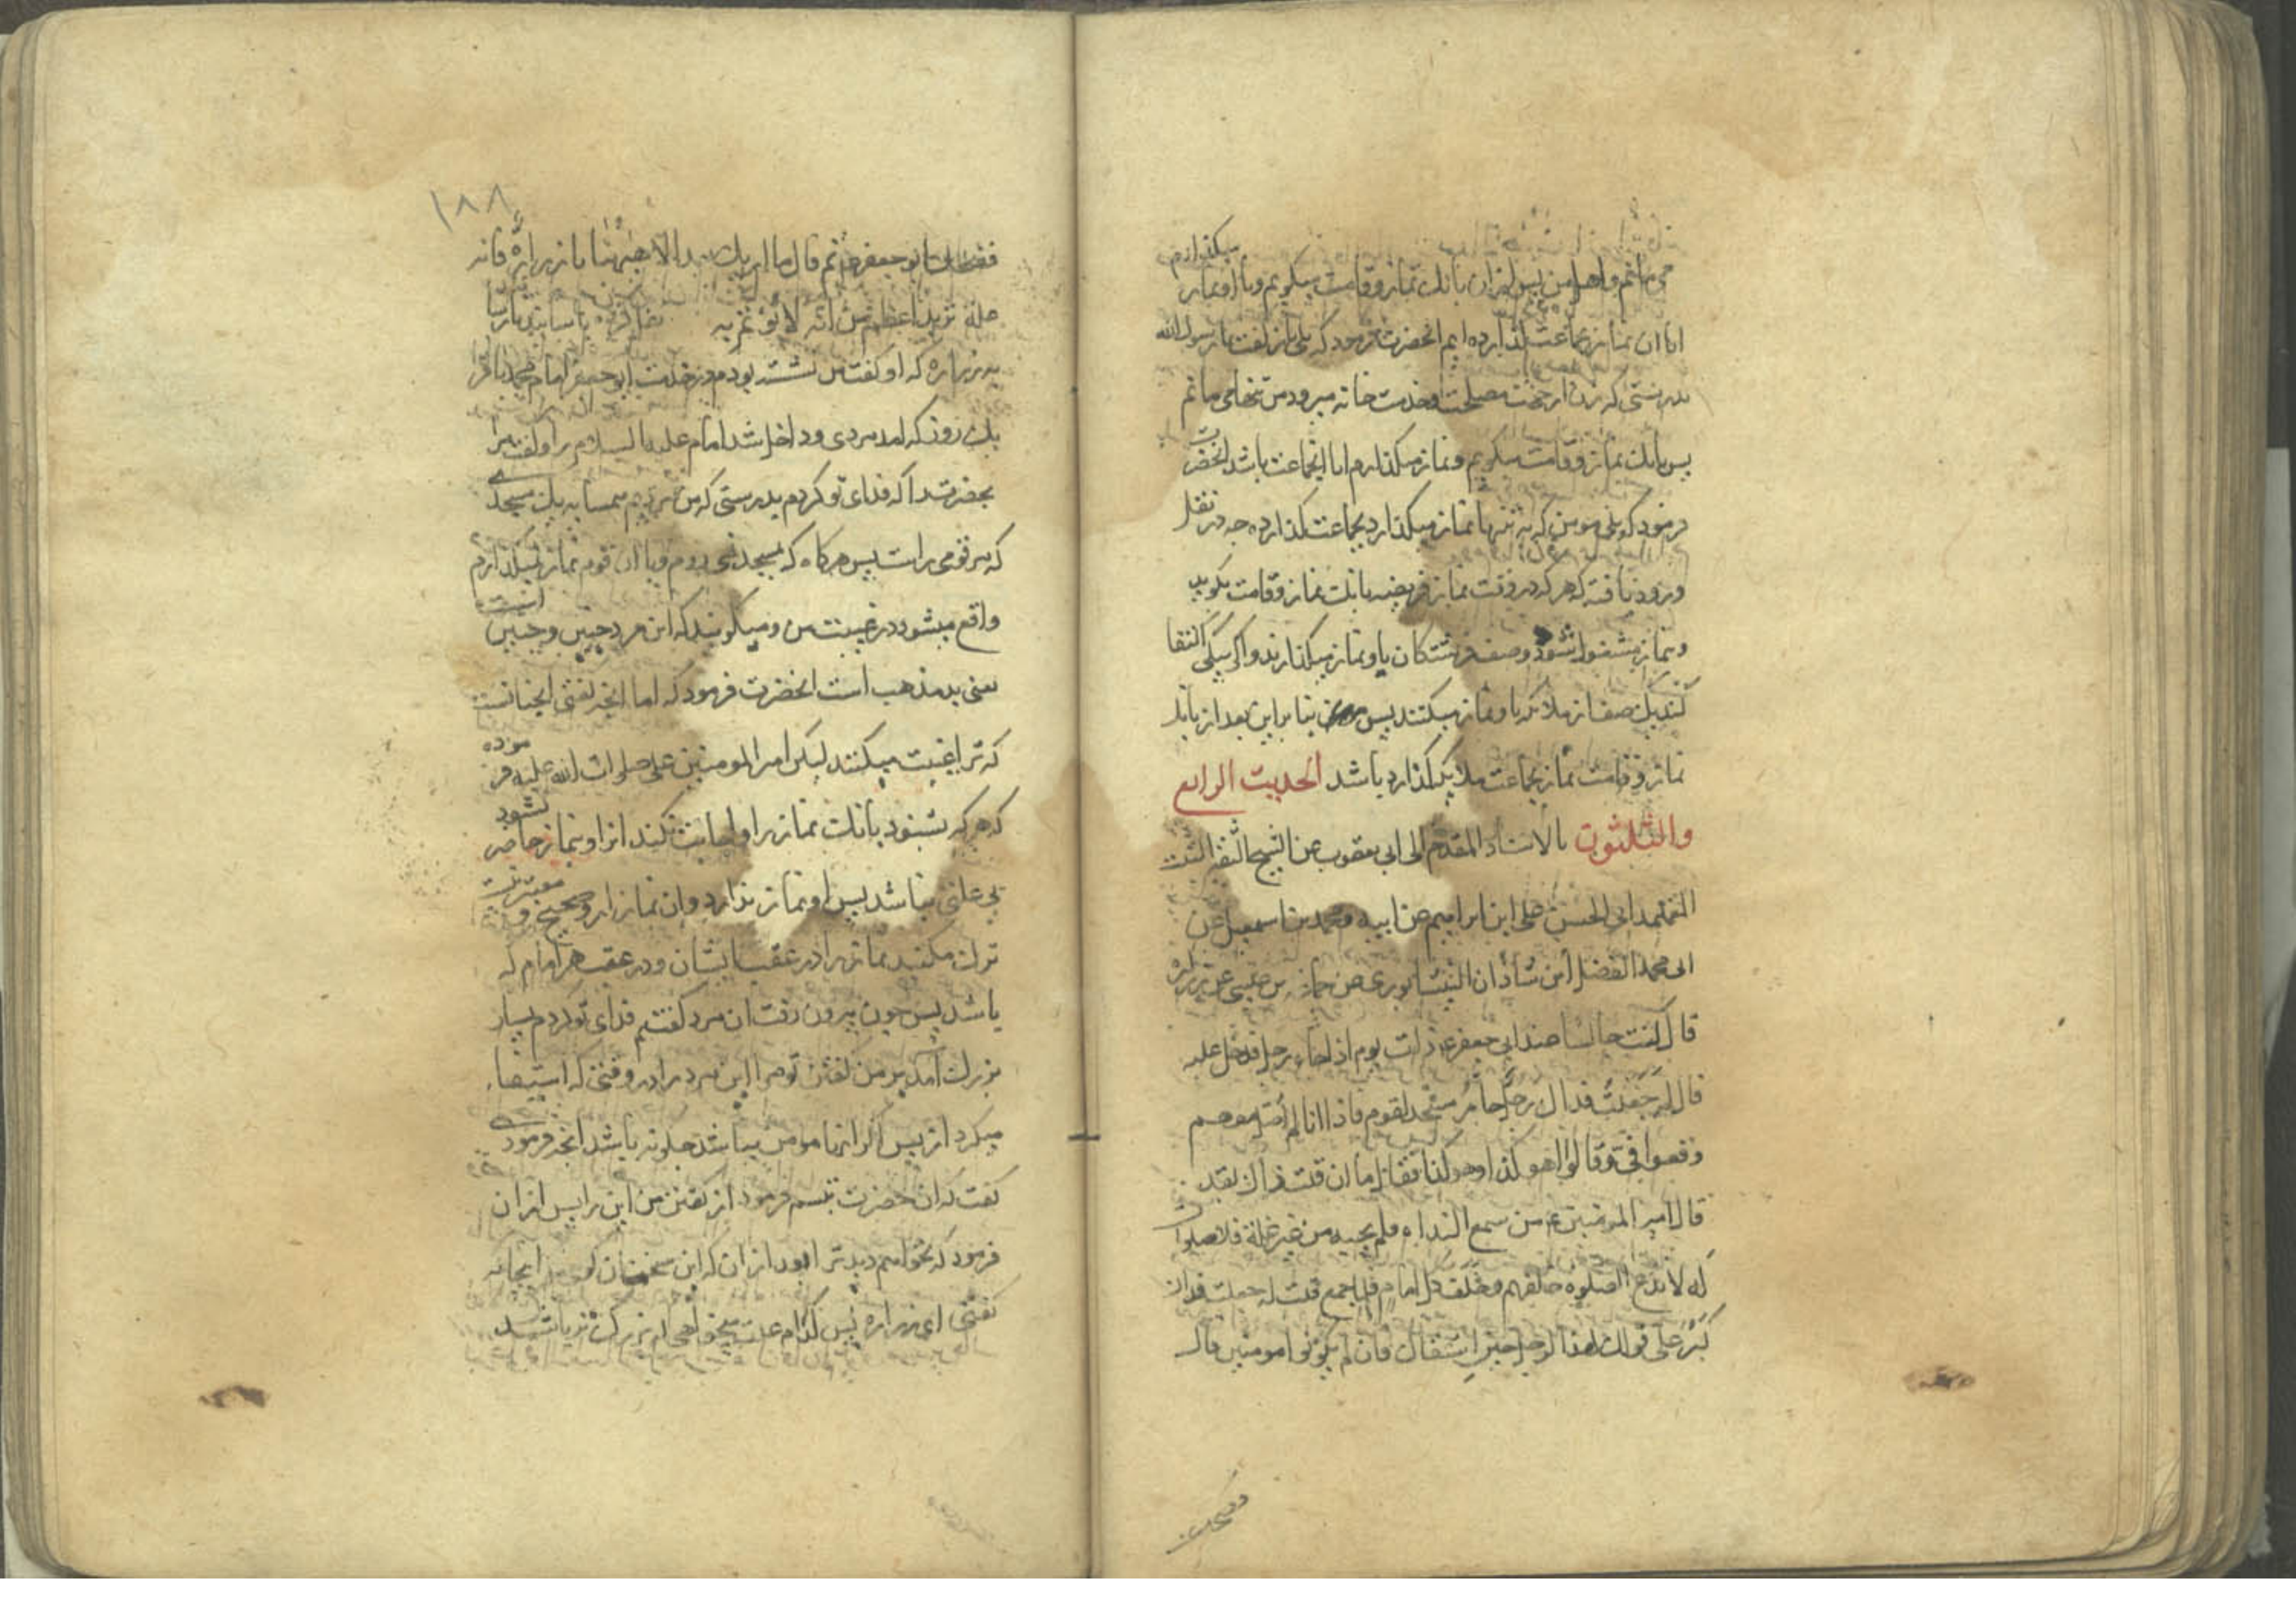 می‌مانم و اهل من پس از ان بانك نماز و قامت میکویم و با او نماز میکذارم
ایا ان نماز بجماعت کذارده ایم انحضرت فرمود که بلی باز کفت یا رسول الله
بدرستی که زن از جهت مصلحت و خدمت خانه میرود من تنها می مانم
پس بانك نماز و قامت میکویم و نماز میکذارم ایا بجماعت باشد انحضرت
فرمود که بلی مومن که به تنها نماز میکذارد بجماعت کذارده چه در نقل
ورود یافته که هر که در وقت نماز فریضه بانك نماز و قامت بکوید
و بنماز مشغول شود دو صف فرشتکان با و نماز میکذارند و اکر بیکی اکتفا
کند یك صف از ملائکه با و نماز میکنند پس بنا براین بعد از بانك
نماز و قامت نماز بجماعت ملائکه کذارد باشد الحدیث الرابع
والثلثون بالاسناد المقدم الی ابی یعقوب عن الشیخ الثقة الثبت
المعتمد ابی الحسن علی ابن ابراهیم عن ابیه و محمد بن اسمعیل عن
ابی محمد الفضل ابن شاذان النیشابوری عن حماد بن عیسی عن زراره
قال کنت جالسا عند ابی جعفر ع ذات یوم اذ جاء رجل فدخل علیه
قال له جعلت فداك رجل جار مسجد لقوم فاذا انا لم اصل معهم
وقعوا فی و قالوا هو کذا و هو کذا فقال اما ان قلت ذاك لقد
قال امیر المومنین ع من سمع النداء فلم یجبه من غیر علة فلا صلوة
له لا تدع الصلوة خلفهم و خلف کل امام فلما خرج قلت له جعلت فداك
کبر علی قولك لهذا الرجل حین استفتاك فان لم یکونوا مومنین قال
فضحك ابو جعفر ع ثم قال ما اریك بعد الا ههنا یا زراره فایه
علة ترید اعظم من انه لا یوتم به
زراره که او کفت من نشسته بودم در خدمت ابو جعفر امام محمد باقر
یك روز که امد مردی و داخل شد امام علیه السلام را و کفت مر
بحضرت را که فدای تو کردم بدرستی که من مردیم همسایه یك مسجدی
که مر قومی راست پس هرکاه که بمسجد نمی روم و با ان قوم نماز نمیکذارم
واقع میشود در غیبت من و میکویند که این مرد چنین و چنین است
یعنی بد مذهب است انحضرت فرمود که اما انچه کفتی انچنانست
که ترا غیبت میکنند لیکن امیر المومنین علی صلوات الله علیه فرموده
که هر که بشنود بانك نماز را و اجابت نکند انرا و بنماز حاضر نشود
بی علتی نباشد پس او نماز ندارد و ان نماز او صحیح و معتبر نیست
ترك مکنید نماز را در عقب ایشان و در عقب هر امام که
باشد پس چون بیرون رفت ان مرد کفتم فدای تو کردم بسیار
بزرك امد بر من کفتن تو مر این مرد را در وقتی که استیفاء
میکرد از پس اکر اینها مومن نباشد چکونه باشد انچه فرمودی
کفت که ان حضرت تبسم فرمود از کفتن من این را پس از ان
فرمود که نخواهم دید ترا بود از ان که این سخنان کوی اینجا نه
کفتی ای زراره پس کدام علت میخواهی که بزرك تر باشد
۱۸۸
فضحك